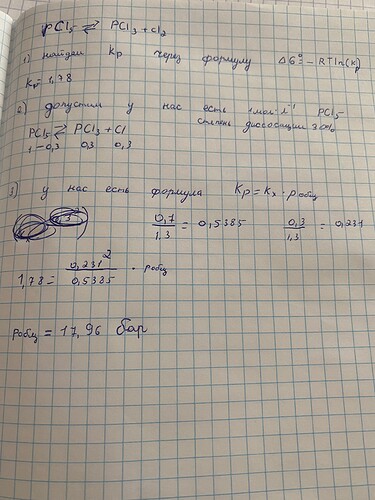 PCl5 ⇄ PCl3 + Cl2
1) найдем Kp через формулу ΔG° = -RTln(Kp)
Kp = 1,78
2) допустим у нас есть 1 мол·л⁻¹ PCl5
степень диссоцации 30%
PCl5 ⇄ PCl3 + Cl
1-0,3 0,3 0,3
3) у нас есть формула Kp = Kx · pобщ
0,7/1,3 = 0,5385 0,3/1,3 = 0,231
1,78 = 0,231²/0,5385 · pобщ
pобщ = 17,96 бар